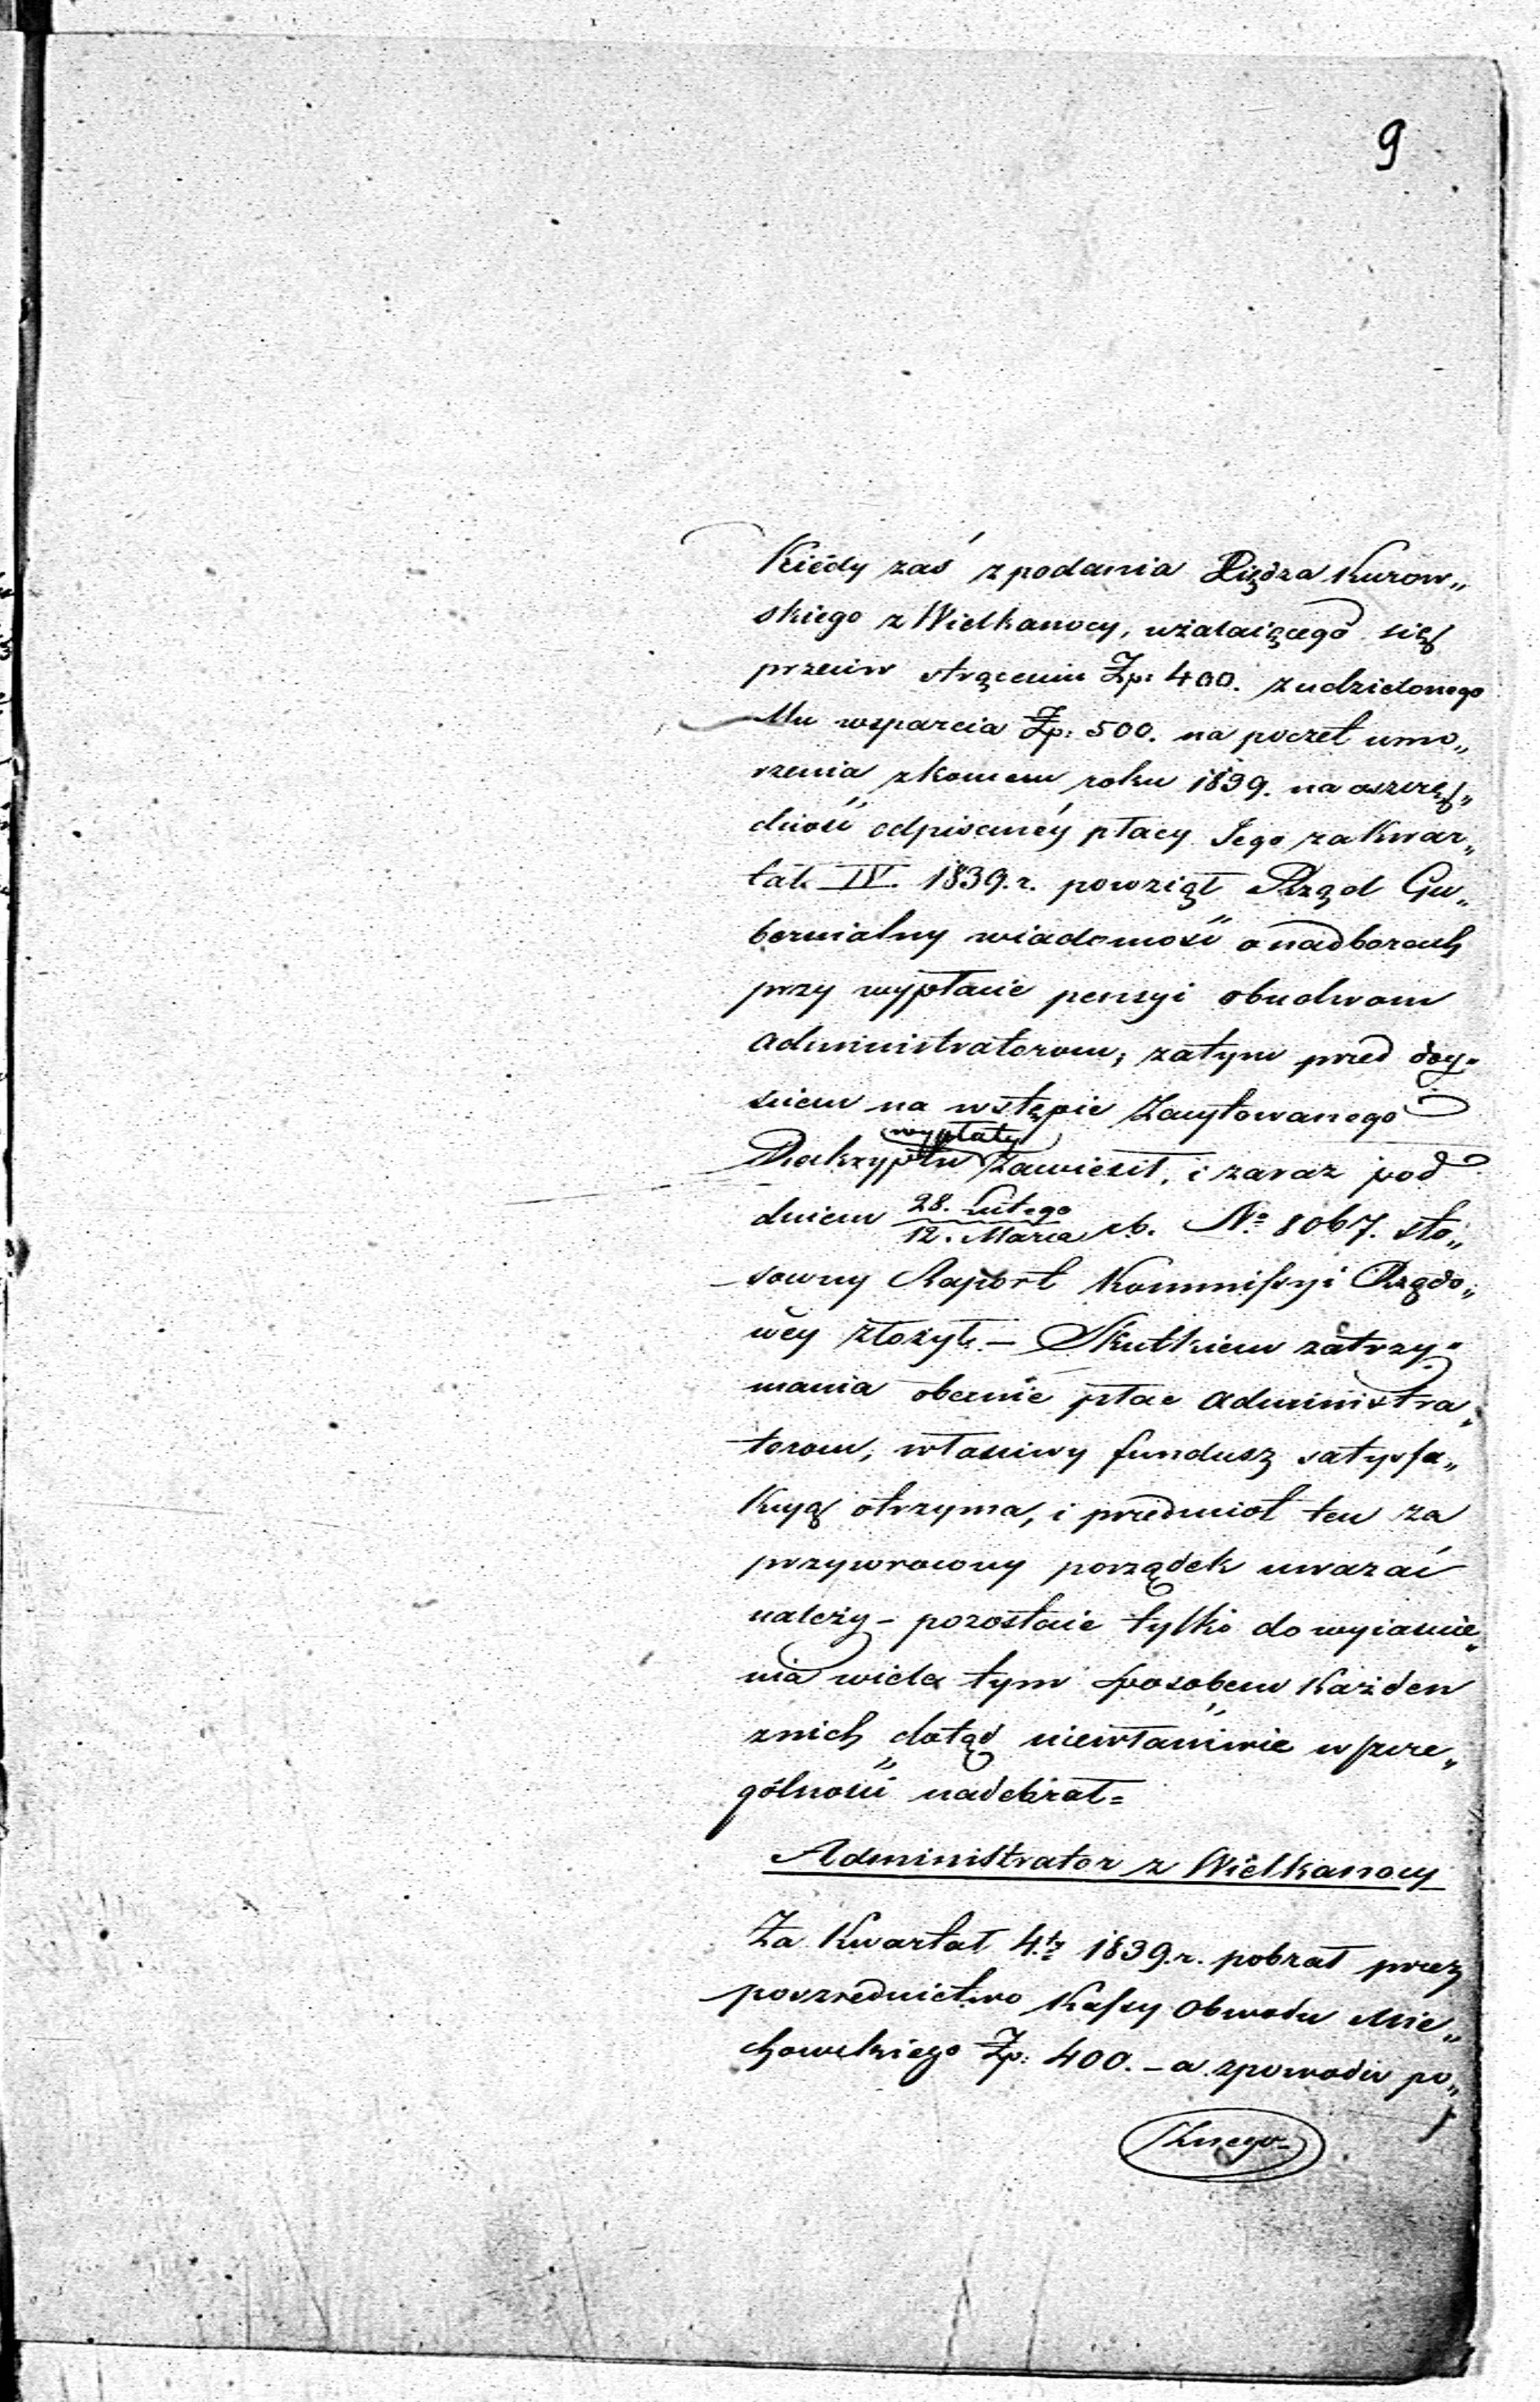 9
Kiédy zaś z podania Xiędza Kurow„
skiego z Wielkanocy, użalaiącego się
przeciw strąceniu Zp: 400. z udzielonego
Mu wsparcia Zp: 500. na poczet umo„
rzenia z końcem roku 1839. na oszczęd„
ność odpisanéy płacy Jego za Kwar„
tał IV. 1839. r. powziął Rząd Gu„
bernialny wiadomość o nadborach
przy wypłacie pensyi obudwom
Administratorom, zatym przed doy„
ściem na wstępie Zacytowanego
wypłaty
Reskryptu Zawiesił, i zaraz pod
dniem 28. Lutego / 12. Marca r.b. No 8067. sto„
sowny Raport Kommissyi Rządo„
wéy złożył. – Skutkiem zatrzy„
mania obecnie płac Administra„
torom, właściwy fundusz satysfa„
kcyą otrzyma, i przedmiot ten za
przywrocony porządek uważać
należy – pozostaie tylko do wyiaśnie„
nia wiele tym sposobem Każden
z nich dotąd niewłaściwie w szcze„
gólności nadebrał =
Administrator z Wielkanocy
Za Kwartał 4.ty 1839. r. pobrał przez
poszrednictwo Kassy Obwodu Mie„
chowskiego Zp: 400. – a z powodu po„